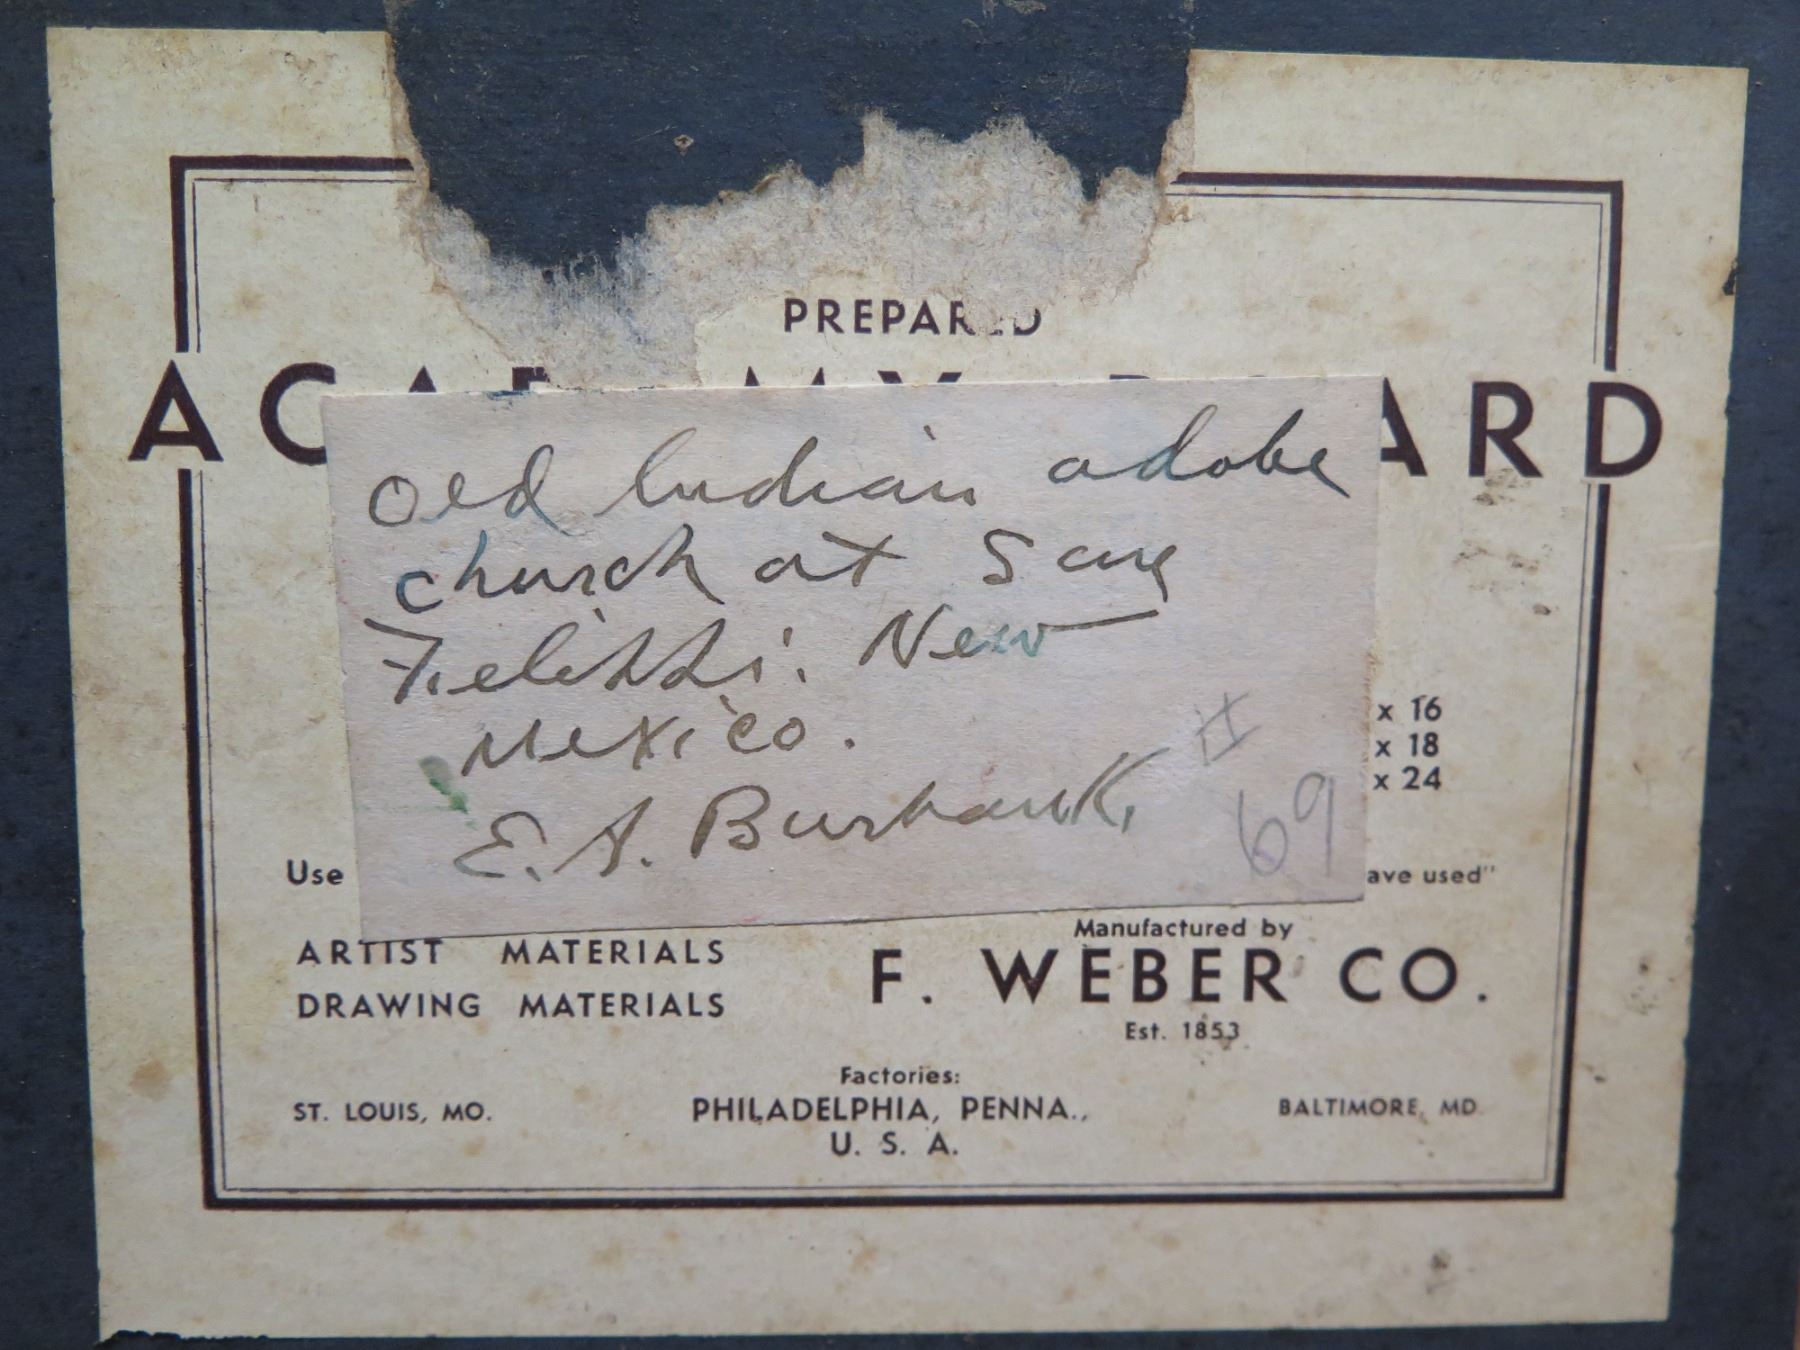 PREPARED
ACADEMY BOARD
Old Indian adobe
church at San
Felippi. New
Mexico.
E. A. Burbank,
#
69
x 16
x 18
x 24
Use
ave used"
ARTIST MATERIALS
DRAWING MATERIALS
Manufactured by
F. WEBER CO.
Est. 1853
Factories:
ST. LOUIS, MO.
PHILADELPHIA, PENNA.,
U. S. A.
BALTIMORE, MD.